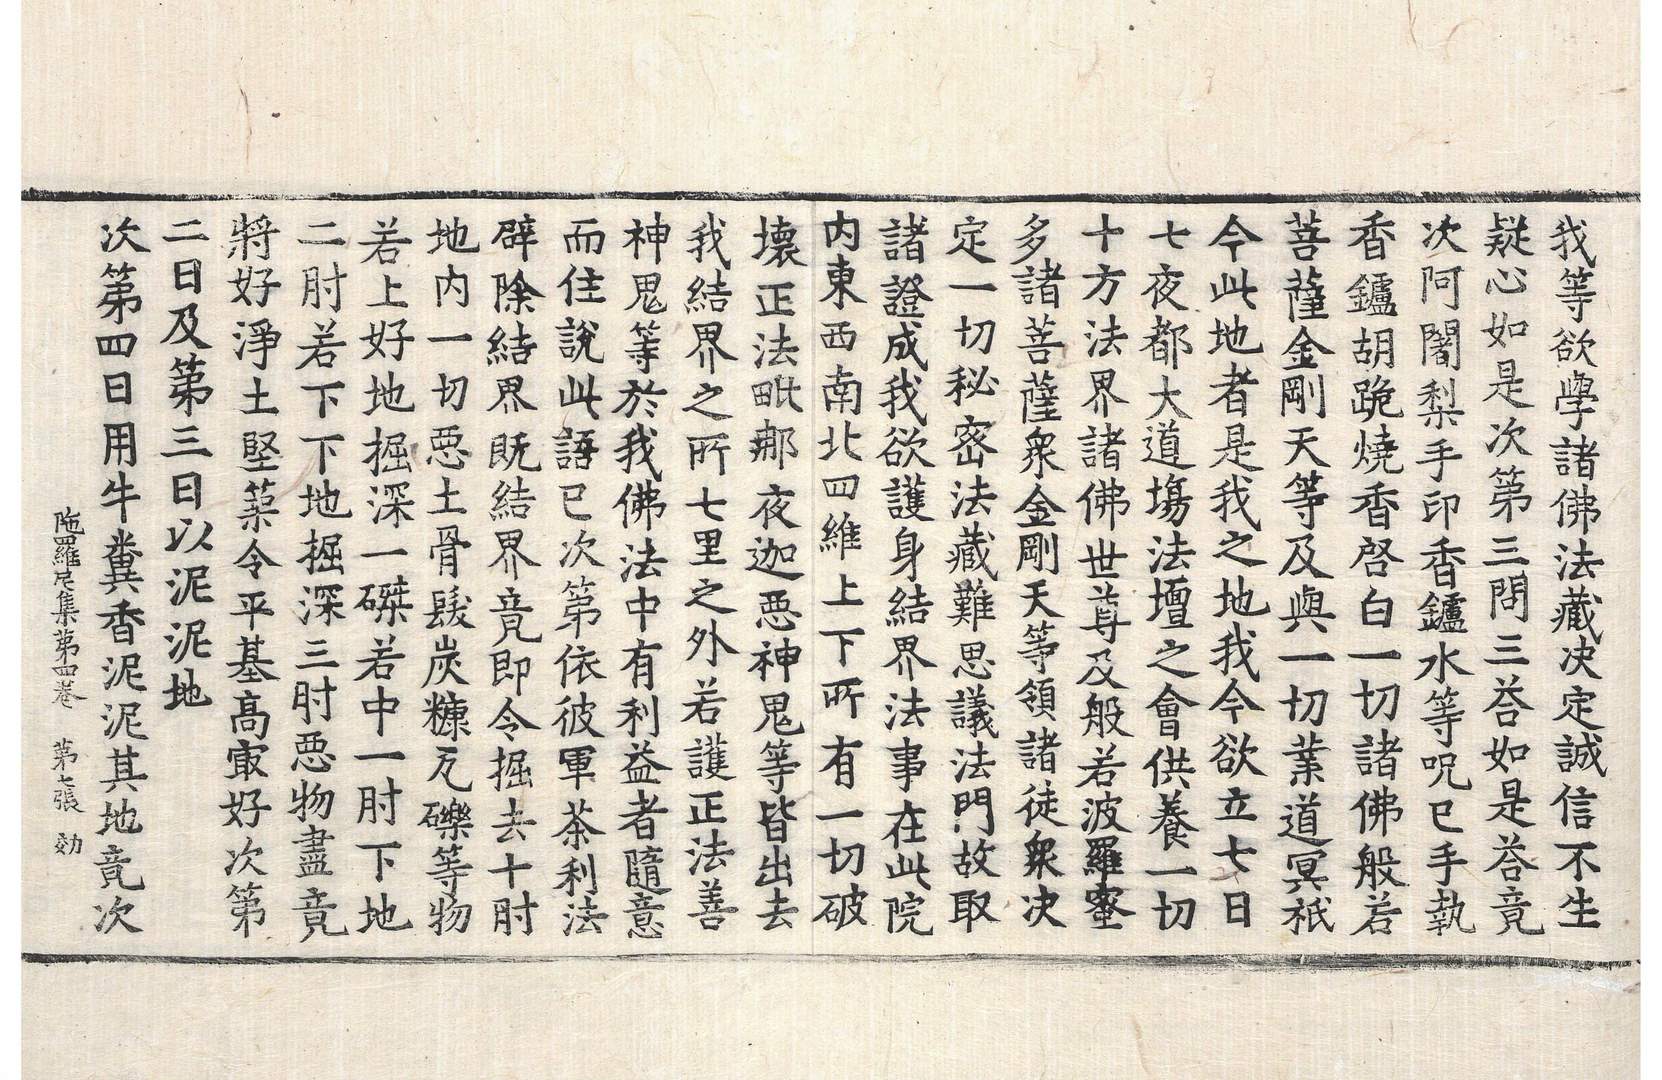 我等欲學諸佛法藏决定誠信不生
疑心如是次第三問三荅如是荅竟
次阿闍梨手印香鑪水等呪已手執
香鑪胡跪燒香啓白一切諸佛般若
菩薩金剛天等及與一切業道冥祇
今此地者是我之地我今欲立七日
七夜都大道塲法壇之會供養一切
十方法界諸佛世尊及般若波羅蜜
多諸菩薩衆金剛天等領諸徒衆决
定一切秘密法藏難思議法門故取
諸證成我欲護身結界法事在此院
内東西南北四維上下所有一切破
壞正法毗那夜迦惡神鬼等皆出去
我結界之所七里之外若護正法善
神鬼等於我佛法中有利益者隨意
而住說此語已次第依彼軍荼利法
辟除結界既結界竟即令掘去十肘
地內一切惡土骨髮炭糠瓦礫等物
若上好地掘深一磔若中一肘下地
二肘若下下地掘深三肘惡物盡竟
將好淨土堅築令平基高㝡好次第
二日及第三日以泥泥地
次第四日用牛糞香泥泥其地竟次
陁羅尼集第四卷 第七張 効